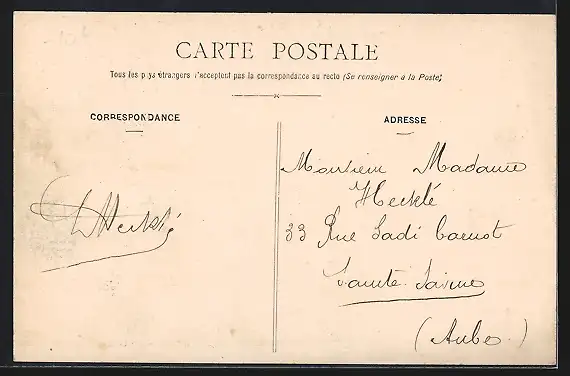 CARTE POSTALE
Tous les pays étrangers n'acceptent pas la correspondance au recto (Se renseigner à la Poste)
CORRESPONDANCE
ADRESSE
Monsieur Madame
Hecklé
33 Rue Sadi Carnot
Sainte Savine
(Aube)
Hecklé